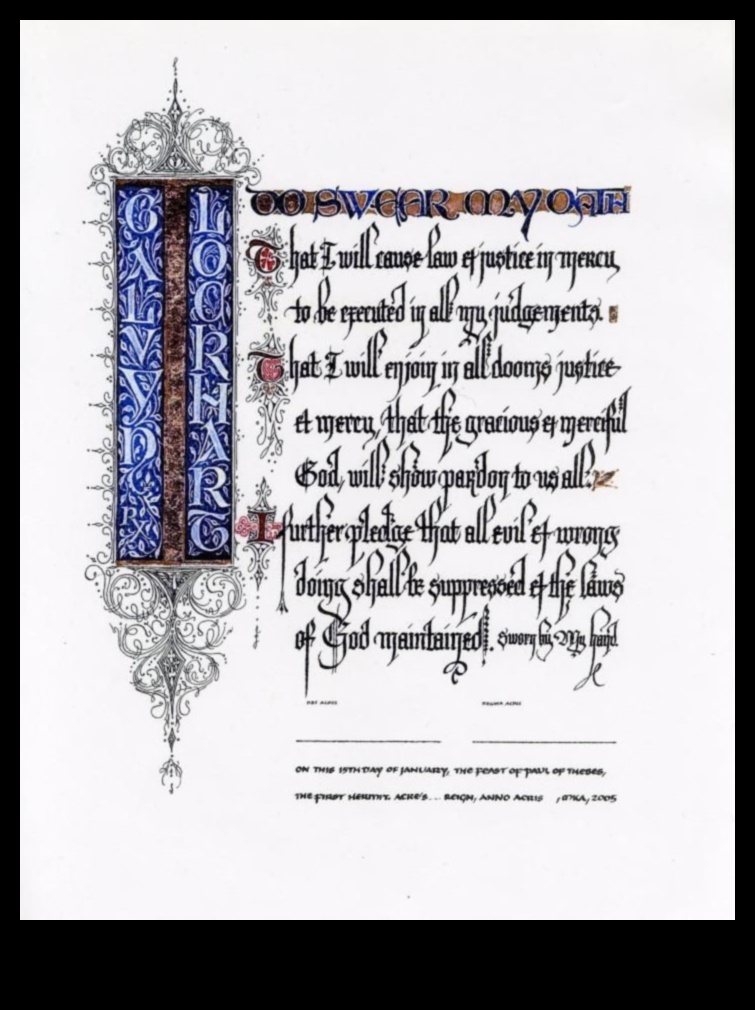 I
GALVYD
REX
LOCKHART
DO SWEAR MY OATH
That I will cause law & justice in mercy,
to be executed in all my judgements.
That I will enjoin in all dooms justice
& mercy, that the gracious & merciful
God, will show pardon to us all.
I further pledge that all evil & wrong
doing shall be suppressed & the laws
of God maintained. Sworn by My hand
REGINA ACRES
ON THIS 15TH DAY OF JANUARY, THE FEAST OF PAUL OF THEBES,
THE FIRST HERMIT. ACRE'S... REIGN, ANNO ACRIS , 2005